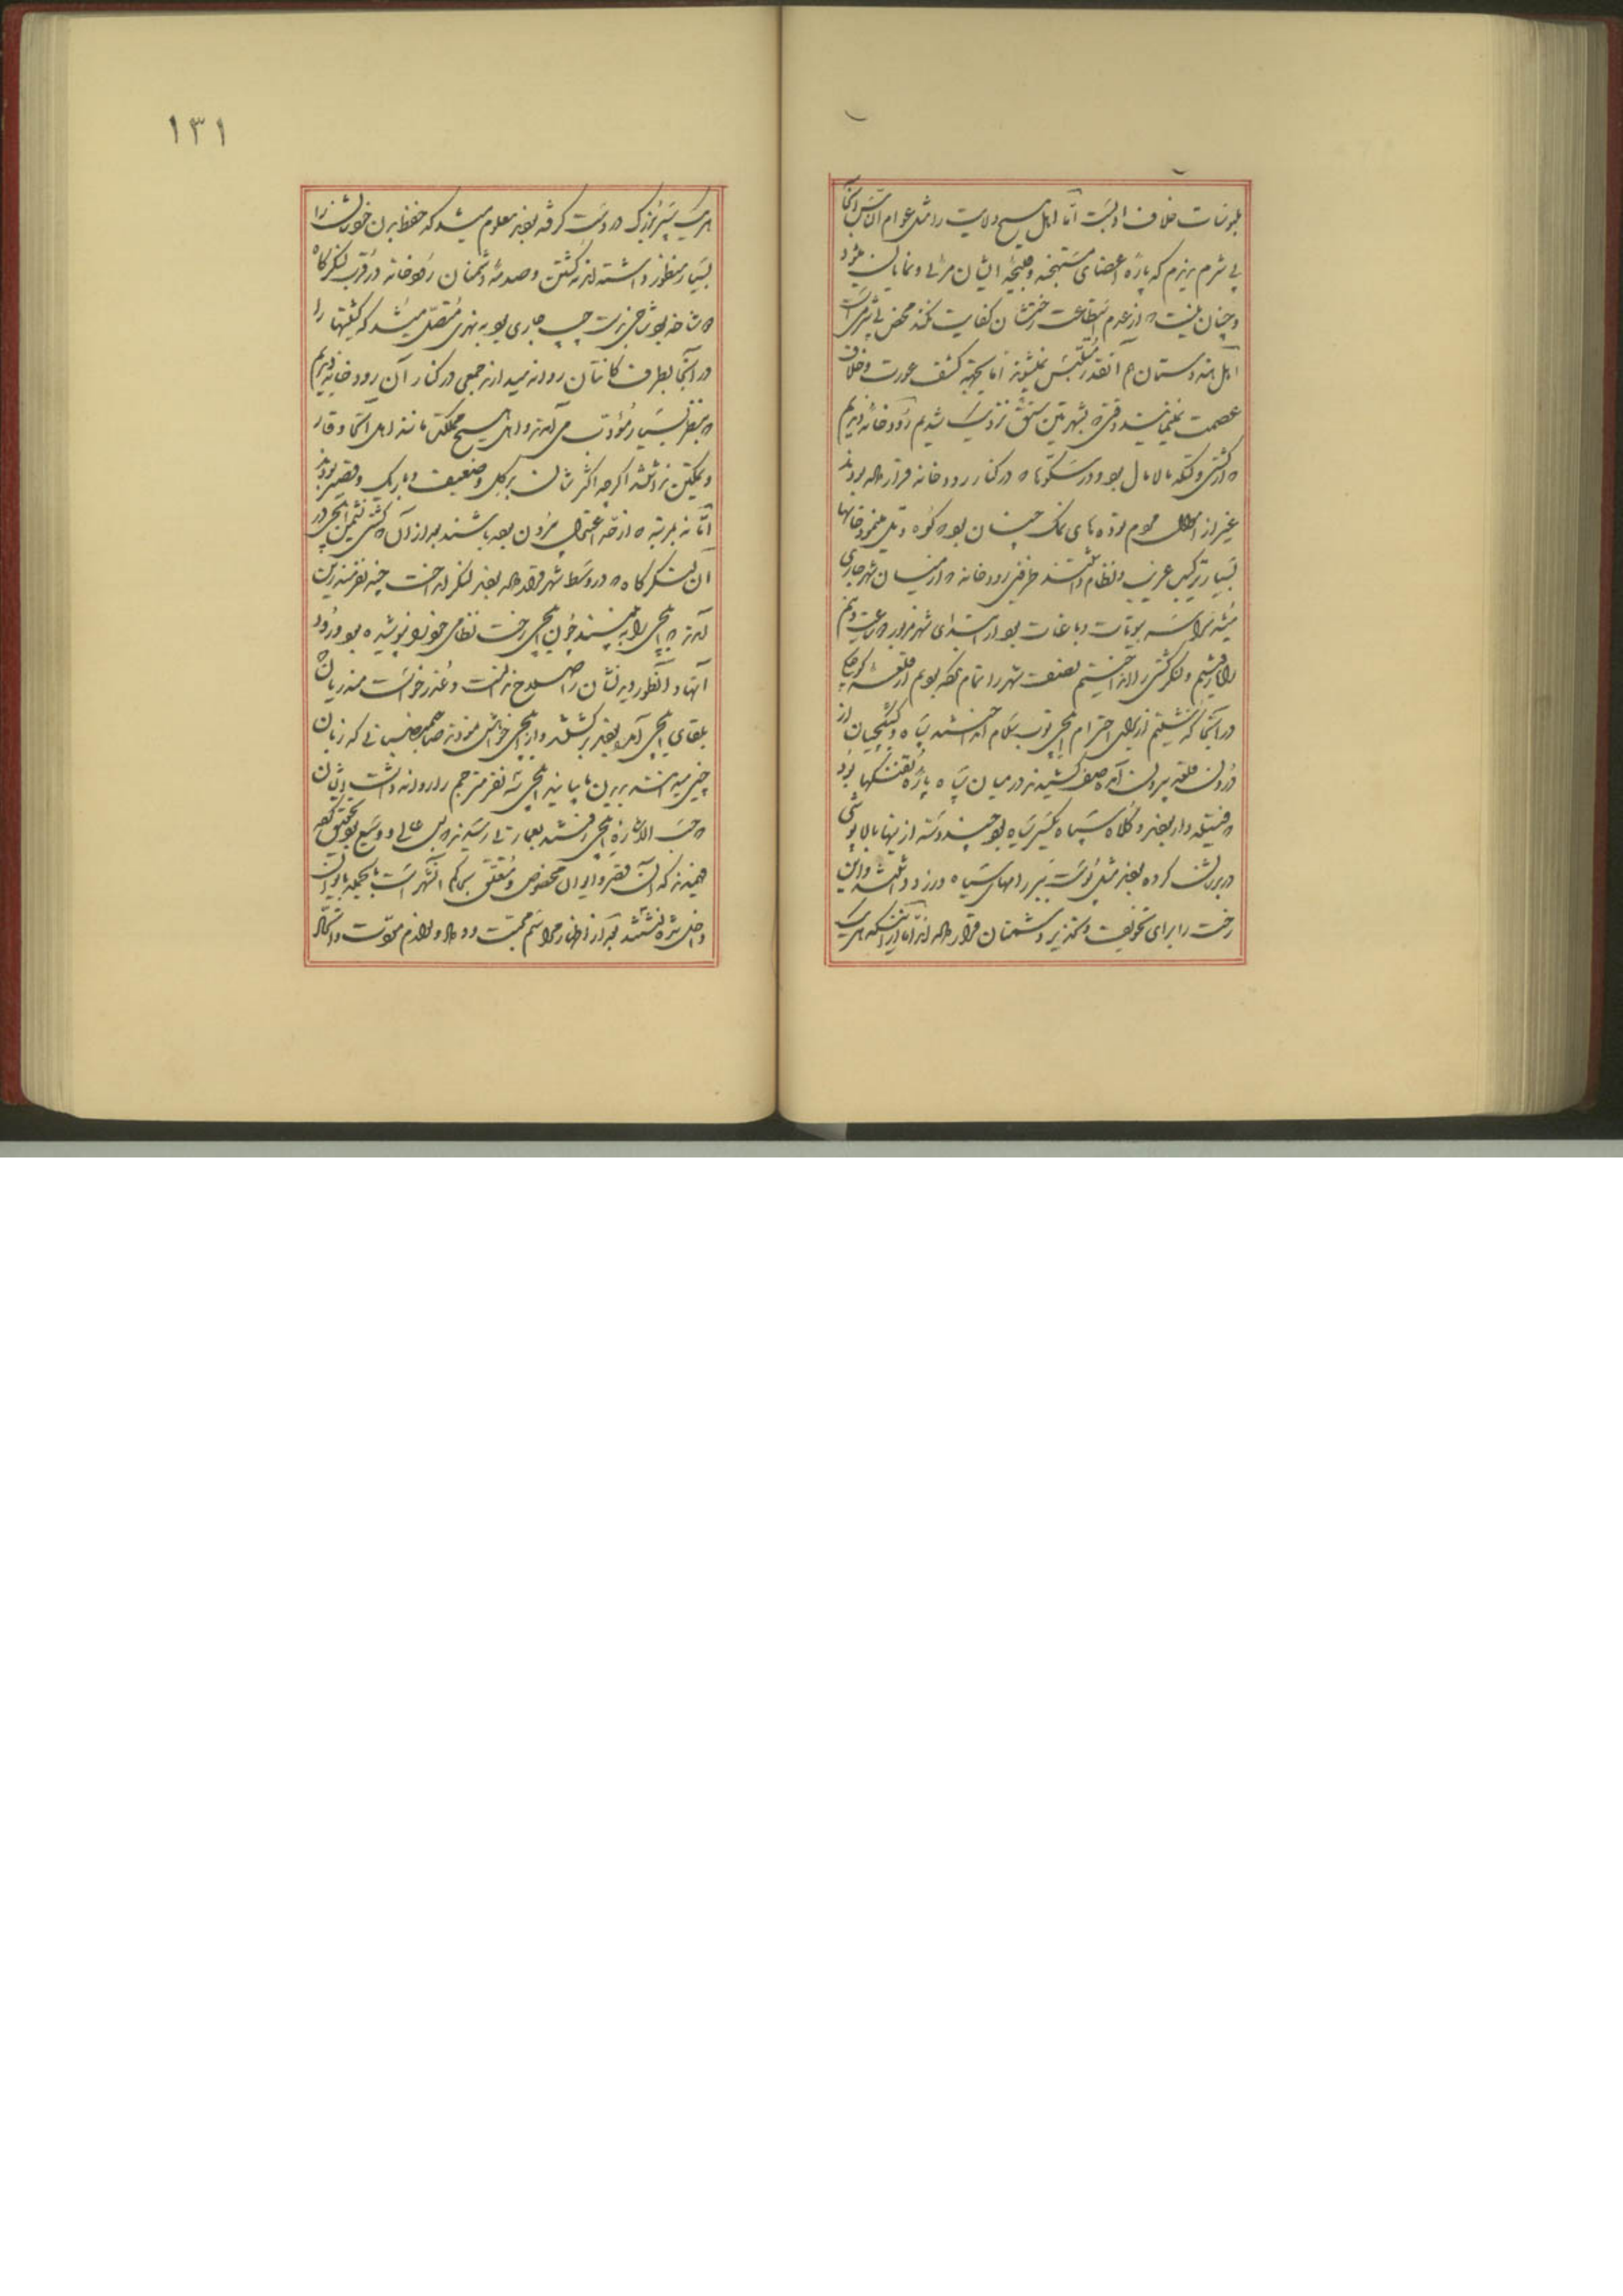 ملبوسات خلاف ادبست اما اهل هیچ ولایت را مثل عوام الناس آنجا
بی شرم ندیدم که پاره اعضای مستهجنه و قبیحه ایشان مرئی و نمایان میشود
و چنان نیست که از عدم استطاعت رختشان کفایت نکند محض بی شرمی است
اهل هندوستان هم آنقدر ملبس نمیشوند اما بجهة کشف عورت و خلاف
عصمت نمینمایند وقتی که بشهر تین سنق نزدیک شدیم رودخانه دیدیم
که از کشتی و لتکه مالامال بود و در سکوها که در کنار رودخانه قرار داده بودند
غیر از هجوم مردم توده های نمک چنان بود که کوه و تل مینمود خانها
بسیار ترکیب غریب و نظام داشتند طرفین رودخانه که از میان شهر جاری
میشد سراسر بیوتات و باغات بود از ابتدای شهر مزبور که ساعت و نیم
راه رفتیم و لنگر کشتی را انداختیم نصف شهر را تمام نکرده بودیم از قلعه کوچک
در آنجا گذشتیم از برای احترام ایلچی توپ سلام انداختند سپاه و کشیکچیان از
درون قلعه بیرون آمده صف کشیدند در میان سپاه پاره تفنگها بود
که فتیله دار بودند و کلاه سپاه یکسر سیاه بود چند دسته از ینها بالاپوشی
در برشان کرده بودند مثل پوست ببر راههای سیاه و زرد داشتند و این
رخت را برای تخویف و تحذیر دشمنان قرار داده اند اما از آنکه هر یک
۱۳۱
هر یک سپر بزرگ در دست گرفته بودند معلوم میشد که حفظ بدن خودشان را
بسیار منظور داشته اند نه کشتن و صدمه دشمنان رودخانه در قرب لنگرگاه
دو شاخه بود شاخی بدست چپ جاری بود به نهری متصل میشد که کشتیها را
در آنجا بطرف کانتان روانه میدارند جمعی در کنار آن رودخانه دیدیم
که بنظر بسیار مؤدب می آمدند و اهل هیچ مملکت مانند اهل آنجا وقار
و تمکین نداشتند اگرچه اکثرشان بدگل و ضعیف و باریک و قصیر بودند
اما نه بمرتبه که از حد اعتدال بیرون بوده باشند بعد از آن که کشتی نشیمن ایلچی در
آن لنگرگاه که در وسط شهر قرار داده بودند لنگر انداخت چند نفر مندرین
آمدند که ایلچی را ببینند چون ایلچی رخت نظامی خود را نپوشیده بود ورود
آنها را آنطور دیدنشان را صلاح ندانست و عذر خواست مندرینان که
بلقای ایلچی آمده بودند برگشتند و از ایلچی خواهش نمودند صاحب منصبانی که زبان
چینی میدانستند بدیدن ما بیایند ایلچی سه نفر مترجم را روانه داشت ایشان
که حسب الاشاره ایلچی رفتند بعمارتی رسیدند که بس عالی و وسیع بود تحقیق کرده
فهمیدند که آن قصر و ایوان مخصوص و متعلق بحاکم آن شهر است بالجمله بایوان
داخل شده نشستند بعد از اظهار مراسم محبت و وداد و لوازم مودت و اتحاد